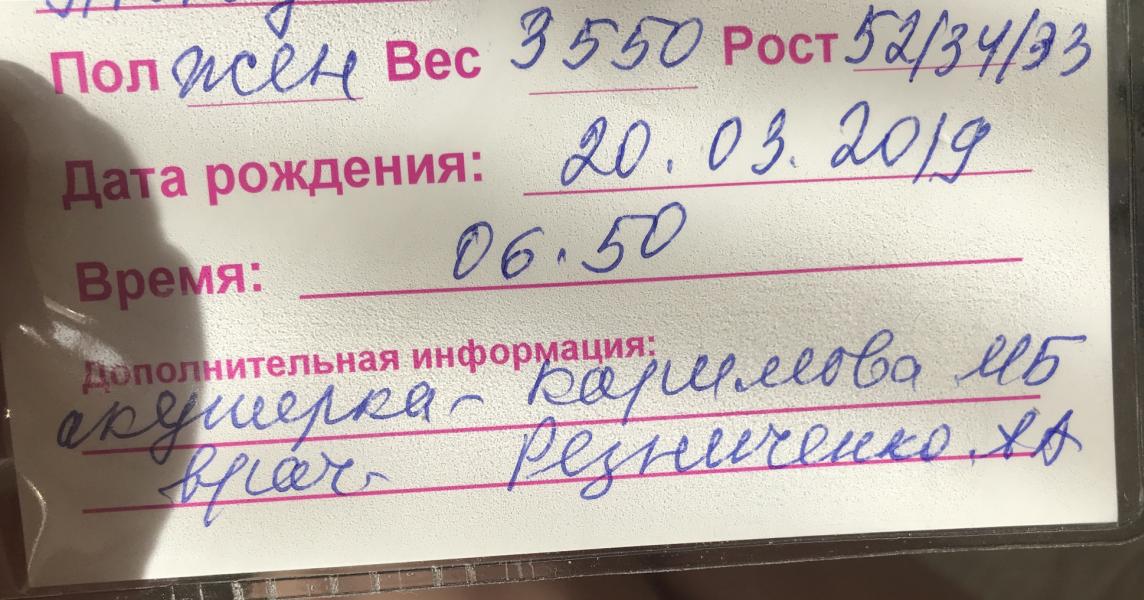 Пол жен Вес 3550 Рост 52/34/33
Дата рождения: 20.03.2019
Время: 06.50
Дополнительная информация:
акушерка - Каримова МБ
врач - Резниченко АА